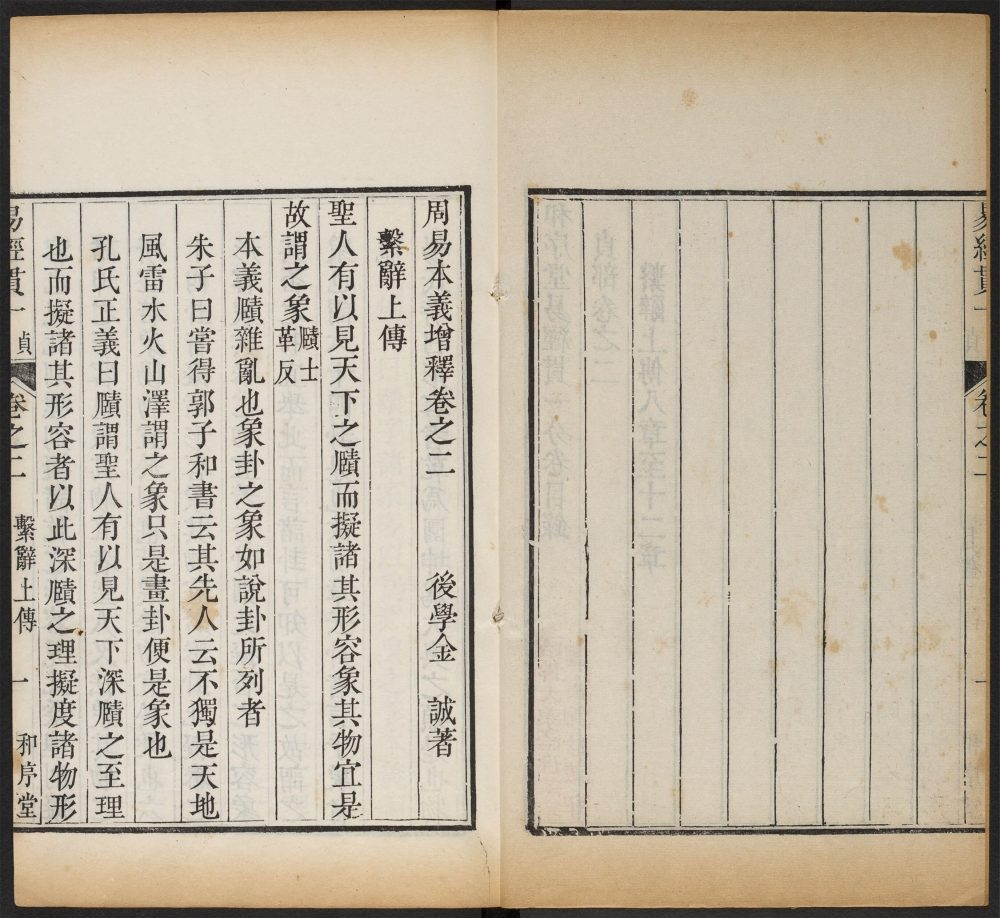 周易本義增釋卷之二 後學金 誠著
繫辭上傳
聖人有以見天下之賾而擬諸其形容象其物宜是
故謂之象賾士革反
本義賾雜亂也象卦之象如說卦所列者
朱子曰嘗得郭子和書云其先人云不獨是天地
風雷水火山澤謂之象只是畫卦便是象也
孔氏正義曰賾謂聖人有以見天下深賾之至理
也而擬諸其形容者以此深賾之理擬度諸物形
易經貫一 貞 卷之二 繫辭上傳 一 和序堂
易經貫一 卷之二